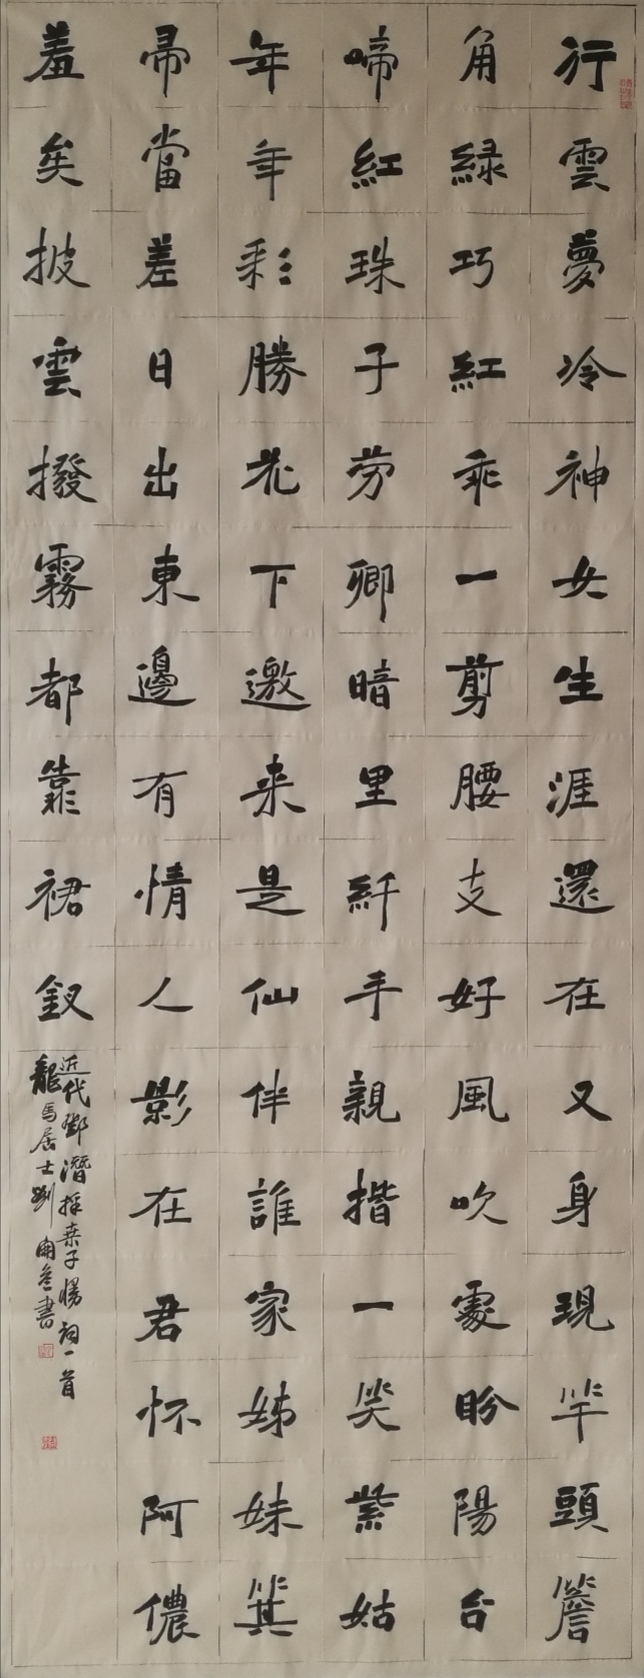 行雲夢冷神女生涯還在又身現竿頭簷
角緑巧紅乖一剪腰支好風吹處盼陽台
啼紅珠子劳卿暗里纤手親揩一笑紫姑
年年彩勝花下邀来是仙伴誰家姊妹箕
帚當差日出東邊有情人影在君怀阿儂
羞矣披雲撥霧都靠裙釵
近代鄧潛採桑子慢詞一首
龍馬居士劉書